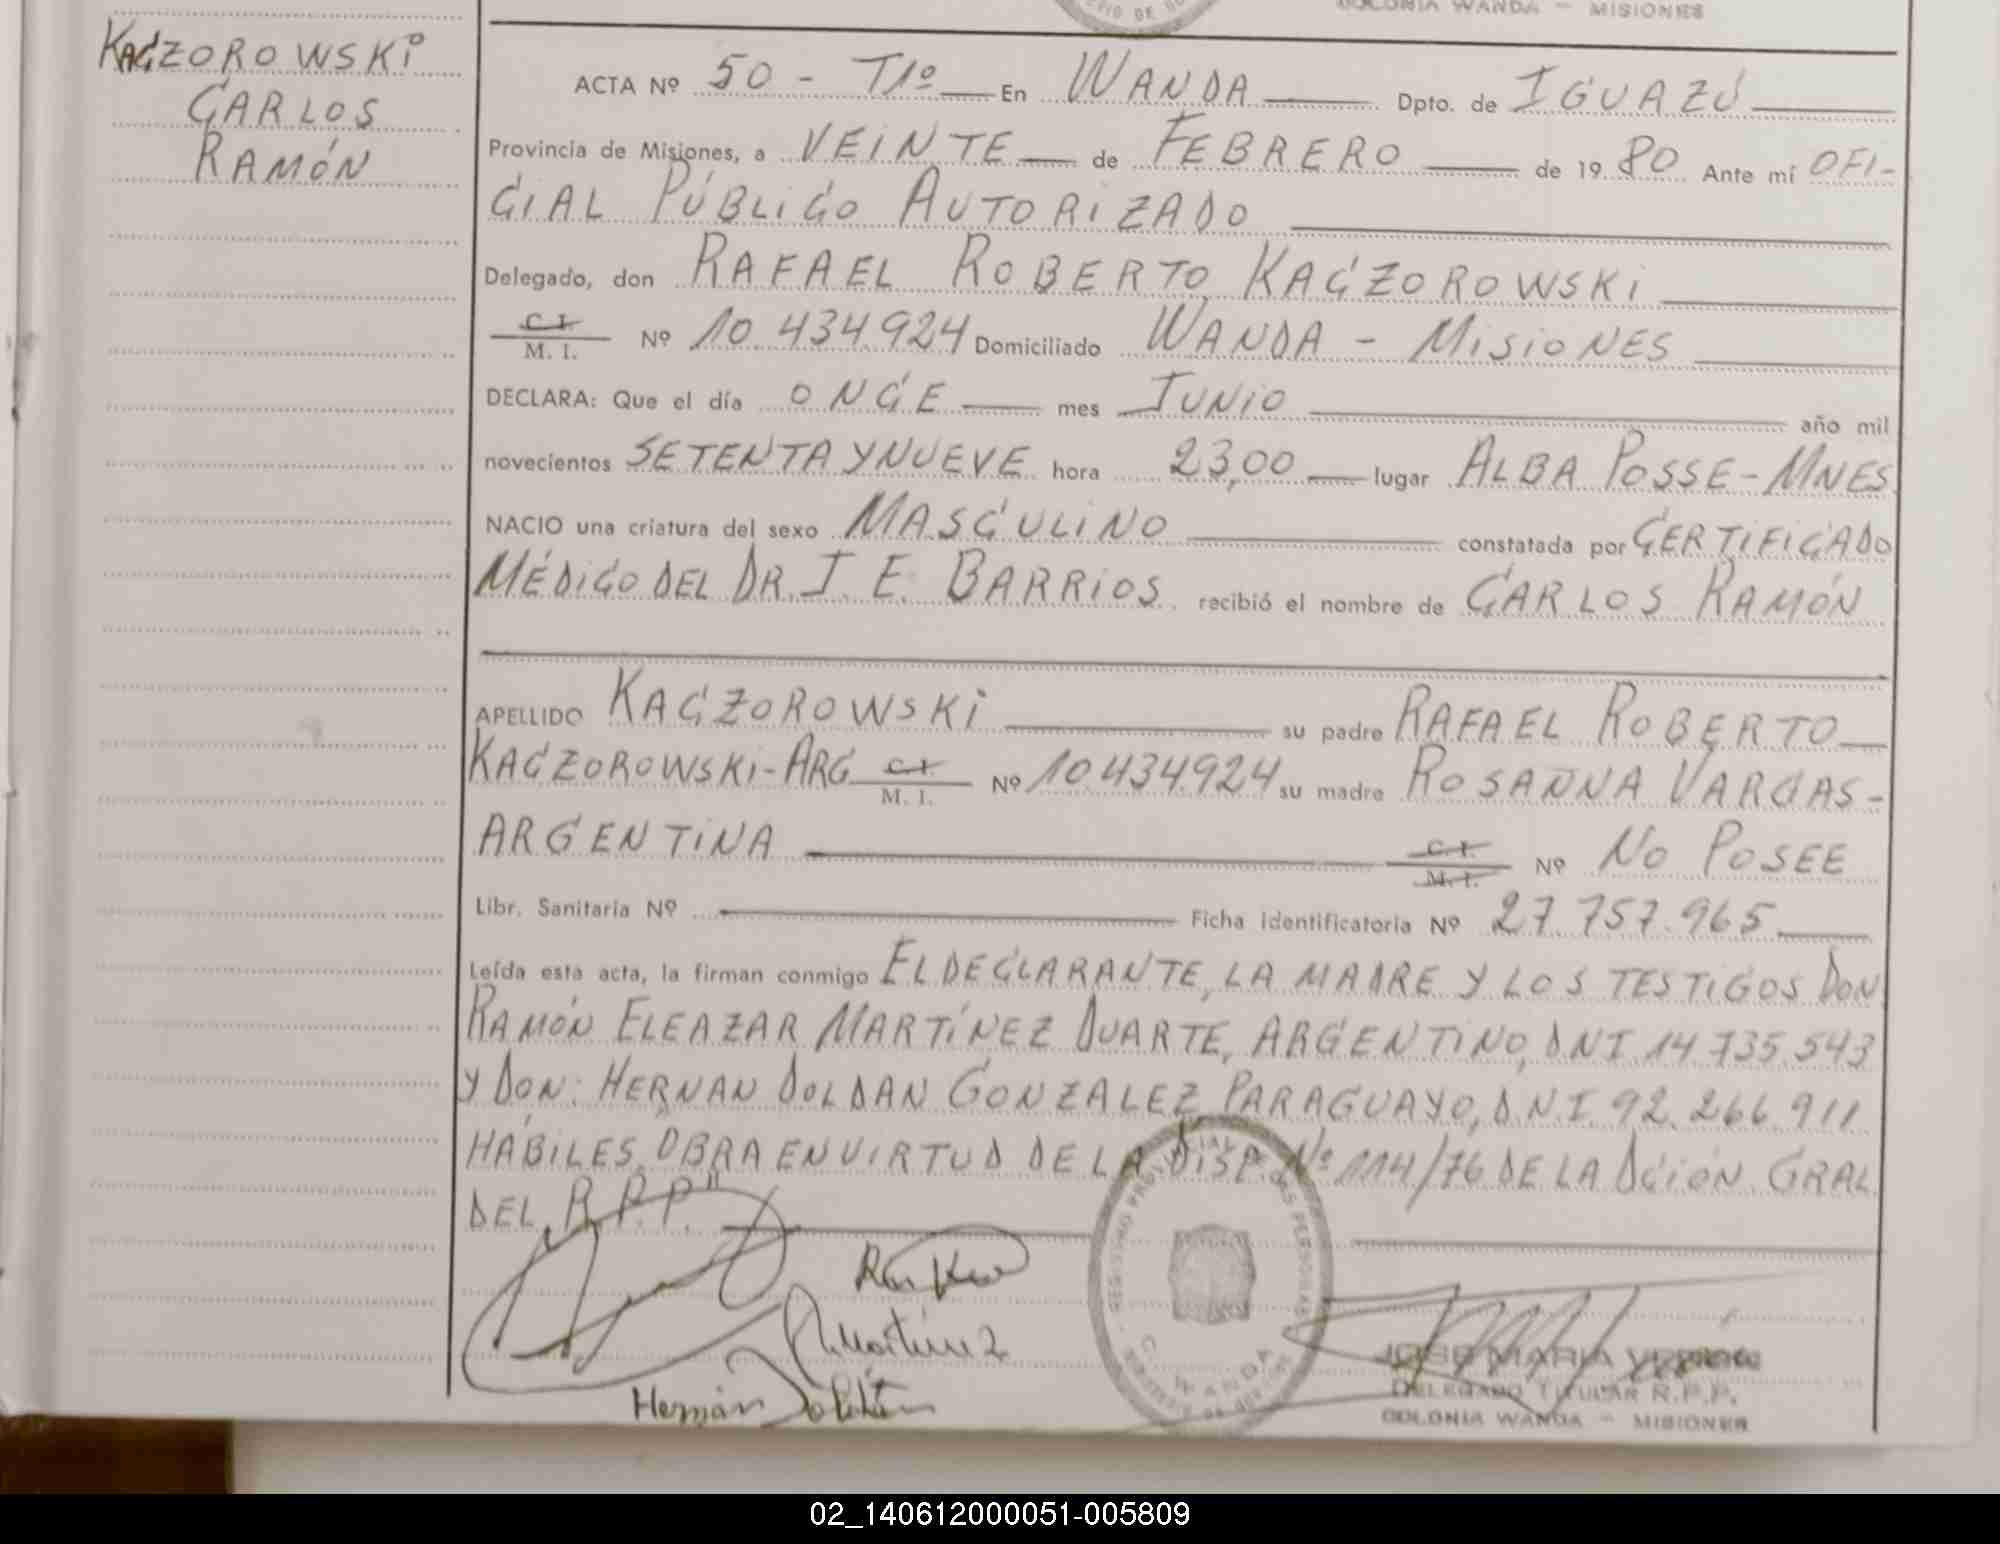 COLONIA WANDA - MISIONES
KACZOROWSKI
CARLOS
RAMÓN
ACTA Nº 50 - T1º En WANDA Dpto. de IGUAZÚ
Provincia de Misiones, a VEINTE de FEBRERO de 1980 Ante mí OFI-
CIAL PÚBLICO AUTORIZADO
Delegado, don RAFAEL ROBERTO KACZOROWSKI
C. I.
M. I. Nº 10.434.924 Domiciliado WANDA - MISIONES
DECLARA: Que el día ONCE mes JUNIO año mil
novecientos SETENTA Y NUEVE hora 23,00 lugar ALBA POSSE - MNES.
NACIO una criatura del sexo MASCULINO constatada por CERTIFICADO
MÉDICO DEL DR. J. E. BARRIOS recibió el nombre de CARLOS RAMÓN
APELLIDO KACZOROWSKI su padre RAFAEL ROBERTO
KACZOROWSKI-ARG C. I.
M. I. Nº 10.434.924 su madre ROSANNA VARGAS-
ARGENTINA C. I.
M. I. Nº NO POSEE
Libr. Sanitaria Nº Ficha identificatoria Nº 27.757.965
Leída esta acta, la firman conmigo EL DECLARANTE, LA MADRE Y LOS TESTIGOS DON
RAMÓN ELEAZAR MARTÍNEZ DUARTE, ARGENTINO, DNI 14.735.543
Y DON: HERNAN DOLDAN GONZALEZ, PARAGUAYO, D.N.I. 92.266.911
HÁBILES. OBRA EN VIRTUD DE LA DISP. Nº 114/76 DE LA DCIÓN GRAL
DEL R.P.P."
R Martínez
Hernán Doldán
REGISTRO PROVINCIAL DE LAS PERSONAS
C. WANDA
JOSE MARIA
DELEGADO TITULAR R.P.P.
COLONIA WANDA - MISIONES
02_140612000051-005809